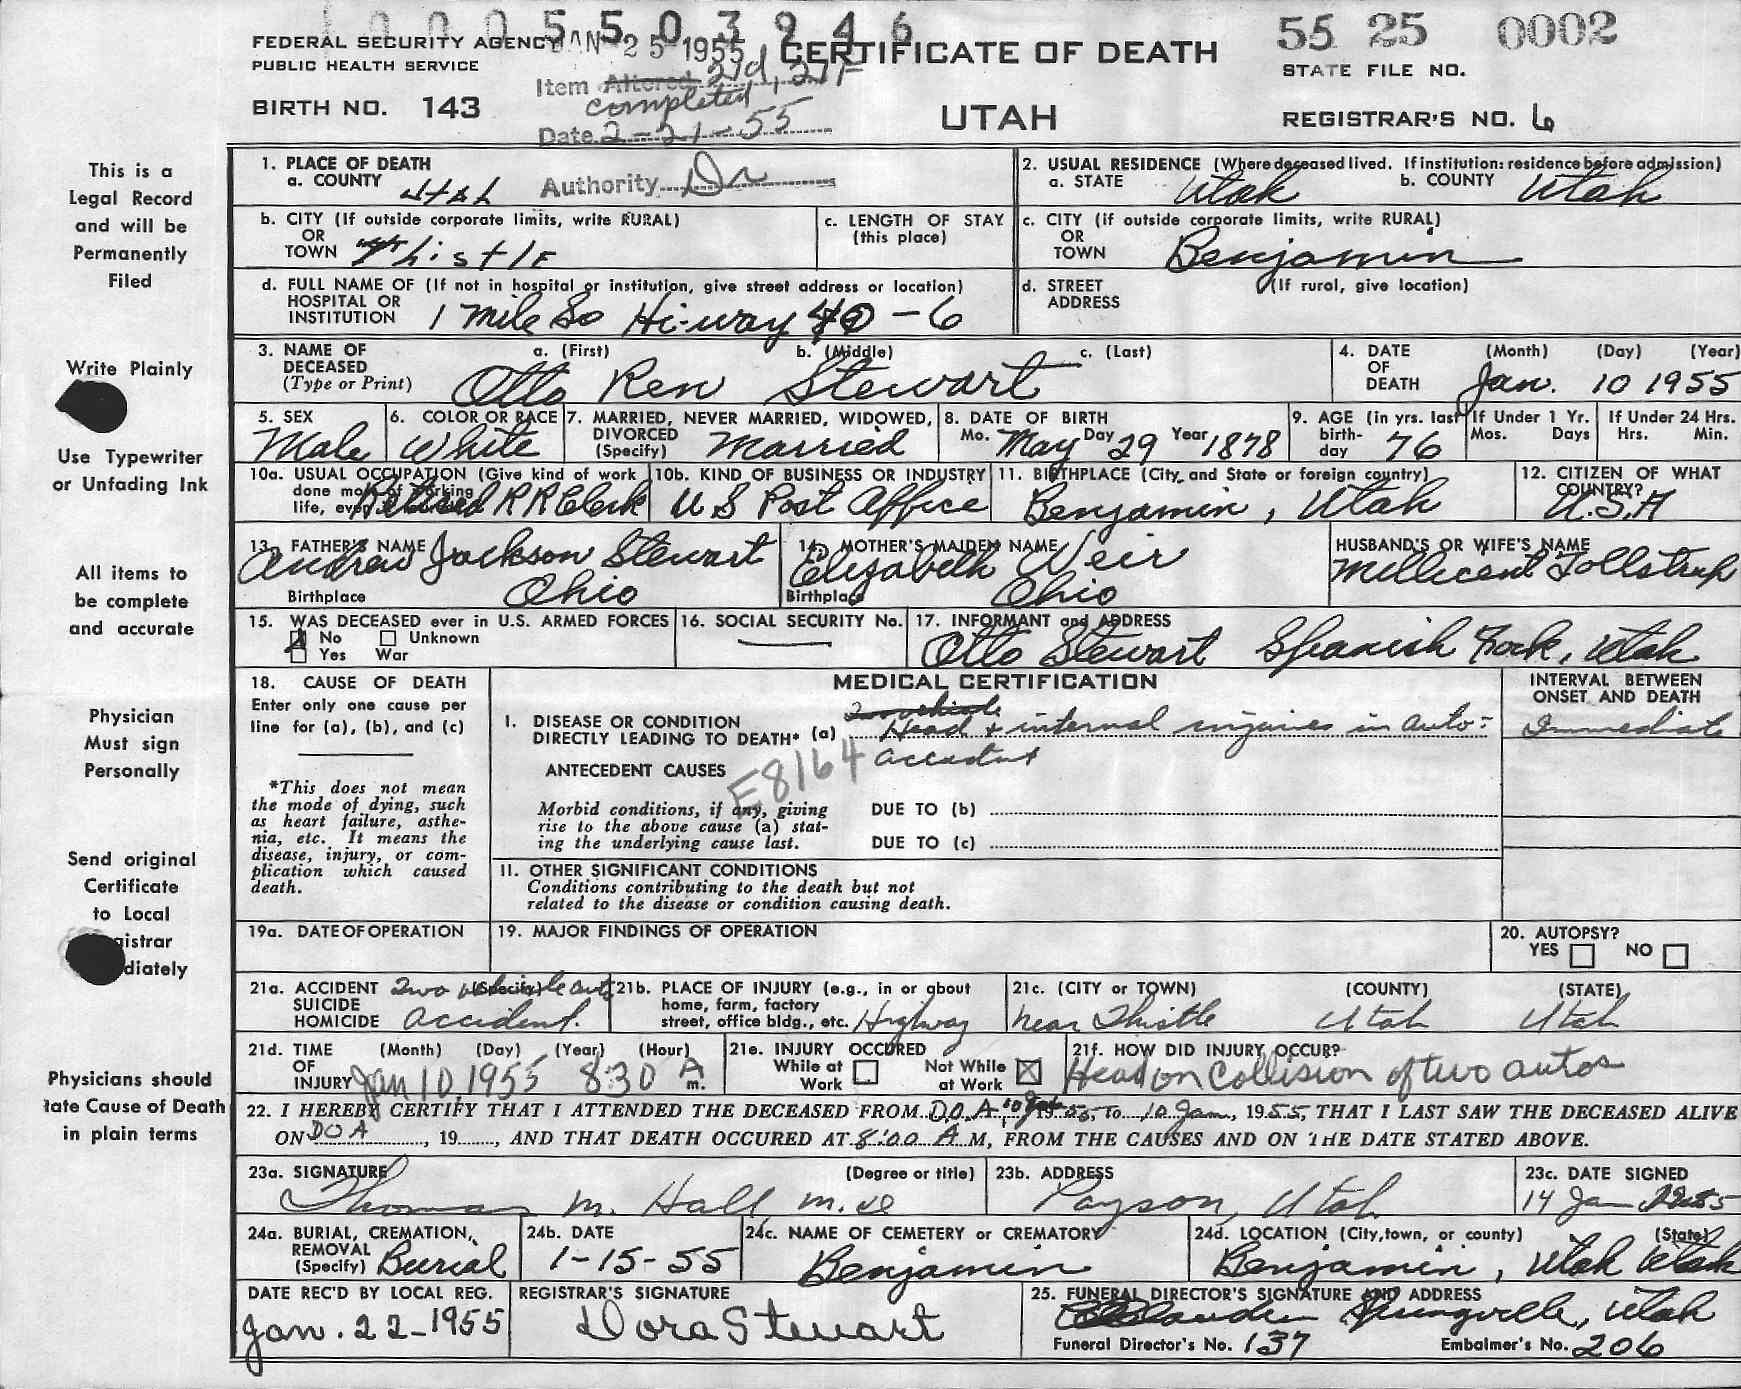 1000 5503946
55 25 0002
FEDERAL SECURITY AGENCY JAN 25 1955 CERTIFICATE OF DEATH
PUBLIC HEALTH SERVICE
STATE FILE NO.
Item Altered 21d, 21F
completed
BIRTH NO. 143
UTAH
REGISTRAR'S NO. 6
Date 2-21-55
Authority Dr
This is a
Legal Record
and will be
Permanently
Filed
Write Plainly
Use Typewriter
or Unfading Ink
All items to
be complete
and accurate
Physician
Must sign
Personally
Send original
Certificate
to Local
gistrar
diately
Physicians should
tate Cause of Death
in plain terms
1. PLACE OF DEATH
a. COUNTY Utah
2. USUAL RESIDENCE (Where deceased lived. If institution: residence before admission)
a. STATE Utah b. COUNTY Utah
b. CITY (If outside corporate limits, write RURAL)
OR
TOWN Thistle
c. LENGTH OF STAY
(this place)
c. CITY (if outside corporate limits, write RURAL)
OR
TOWN Benjamin
d. FULL NAME OF (If not in hospital or institution, give street address or location)
HOSPITAL OR
INSTITUTION 1 mile So Hi-way 50-6
d. STREET (If rural, give location)
ADDRESS
3. NAME OF DECEASED (Type or Print)
a. (First) b. (Middle) c. (Last)
Otto Ren Stewart
4. DATE OF DEATH
(Month) (Day) (Year)
Jan. 10 1955
5. SEX
Male
6. COLOR OR RACE
White
7. MARRIED, NEVER MARRIED, WIDOWED,
DIVORCED
(Specify) Married
8. DATE OF BIRTH
Mo. May Day 29 Year 1878
9. AGE (in yrs. last
birth-
day 76
If Under 1 Yr.
Mos. Days
If Under 24 Hrs.
Hrs. Min.
10a. USUAL OCCUPATION (Give kind of work
done most of working
life, even Retired RR Clerk
10b. KIND OF BUSINESS OR INDUSTRY
U S Post Office
11. BIRTHPLACE (City, and State or foreign country)
Benjamin, Utah
12. CITIZEN OF WHAT
COUNTRY?
U.S.A
13. FATHER'S NAME
Andrew Jackson Stewart
Birthplace Ohio
14. MOTHER'S MAIDEN NAME
Elizabeth Weir
Birthplace Ohio
HUSBAND'S OR WIFE'S NAME
Millicent Tollstrup
15. WAS DECEASED ever in U.S. ARMED FORCES
No Unknown
Yes War
16. SOCIAL SECURITY No.
17. INFORMANT and ADDRESS
Otto Stewart Spanish Fork, Utah
18. CAUSE OF DEATH
Enter only one cause per
line for (a), (b), and (c)
*This does not mean
the mode of dying, such
as heart failure, asthe-
nia, etc. It means the
disease, injury, or com-
plication which caused
death.
MEDICAL CERTIFICATION
2 vehicle
I. DISEASE OR CONDITION
DIRECTLY LEADING TO DEATH* (a) Head & internal injuries in auto-
accident
ANTECEDENT CAUSES
E8164
Morbid conditions, if any, giving
rise to the above cause (a) stat-
ing the underlying cause last.
DUE TO (b)
DUE TO (c)
II. OTHER SIGNIFICANT CONDITIONS
Conditions contributing to the death but not
related to the disease or condition causing death.
INTERVAL BETWEEN
ONSET AND DEATH
Immediate
19a. DATE OF OPERATION
19. MAJOR FINDINGS OF OPERATION
20. AUTOPSY?
YES NO
21a. ACCIDENT (Specify) Two vehicle auto
SUICIDE
HOMICIDE accident.
21b. PLACE OF INJURY (e.g., in or about
home, farm, factory
street, office bldg., etc. Highway
21c. (CITY or TOWN) (COUNTY) (STATE)
near Thistle Utah Utah
21d. TIME OF INJURY
(Month) (Day) (Year) (Hour)
Jan 10, 1955 8:30 A m.
21e. INJURY OCCURED
While at Work Not While at Work
21f. HOW DID INJURY OCCUR?
Head on Collision of two autos
22. I HEREBY CERTIFY THAT I ATTENDED THE DECEASED FROM D.O.A. 10 Jan, 1955, TO 10 Jan, 1955, THAT I LAST SAW THE DECEASED ALIVE
ON DOA, 19, AND THAT DEATH OCCURED AT 8:00 A M, FROM THE CAUSES AND ON THE DATE STATED ABOVE.
23a. SIGNATURE (Degree or title)
Thomas M. Hall M.D
23b. ADDRESS
Payson, Utah
23c. DATE SIGNED
14 Jan 1955
24a. BURIAL, CREMATION,
REMOVAL
(Specify) Burial
24b. DATE
1-15-55
24c. NAME OF CEMETERY or CREMATORY
Benjamin
24d. LOCATION (City, town, or county) (State)
Benjamin, Utah Utah
DATE REC'D BY LOCAL REG.
Jan. 22-1955
REGISTRAR'S SIGNATURE
Dora Stewart
25. FUNERAL DIRECTOR'S SIGNATURE AND ADDRESS
Springville, Utah
Funeral Director's No. 137 Embalmer's No. 206